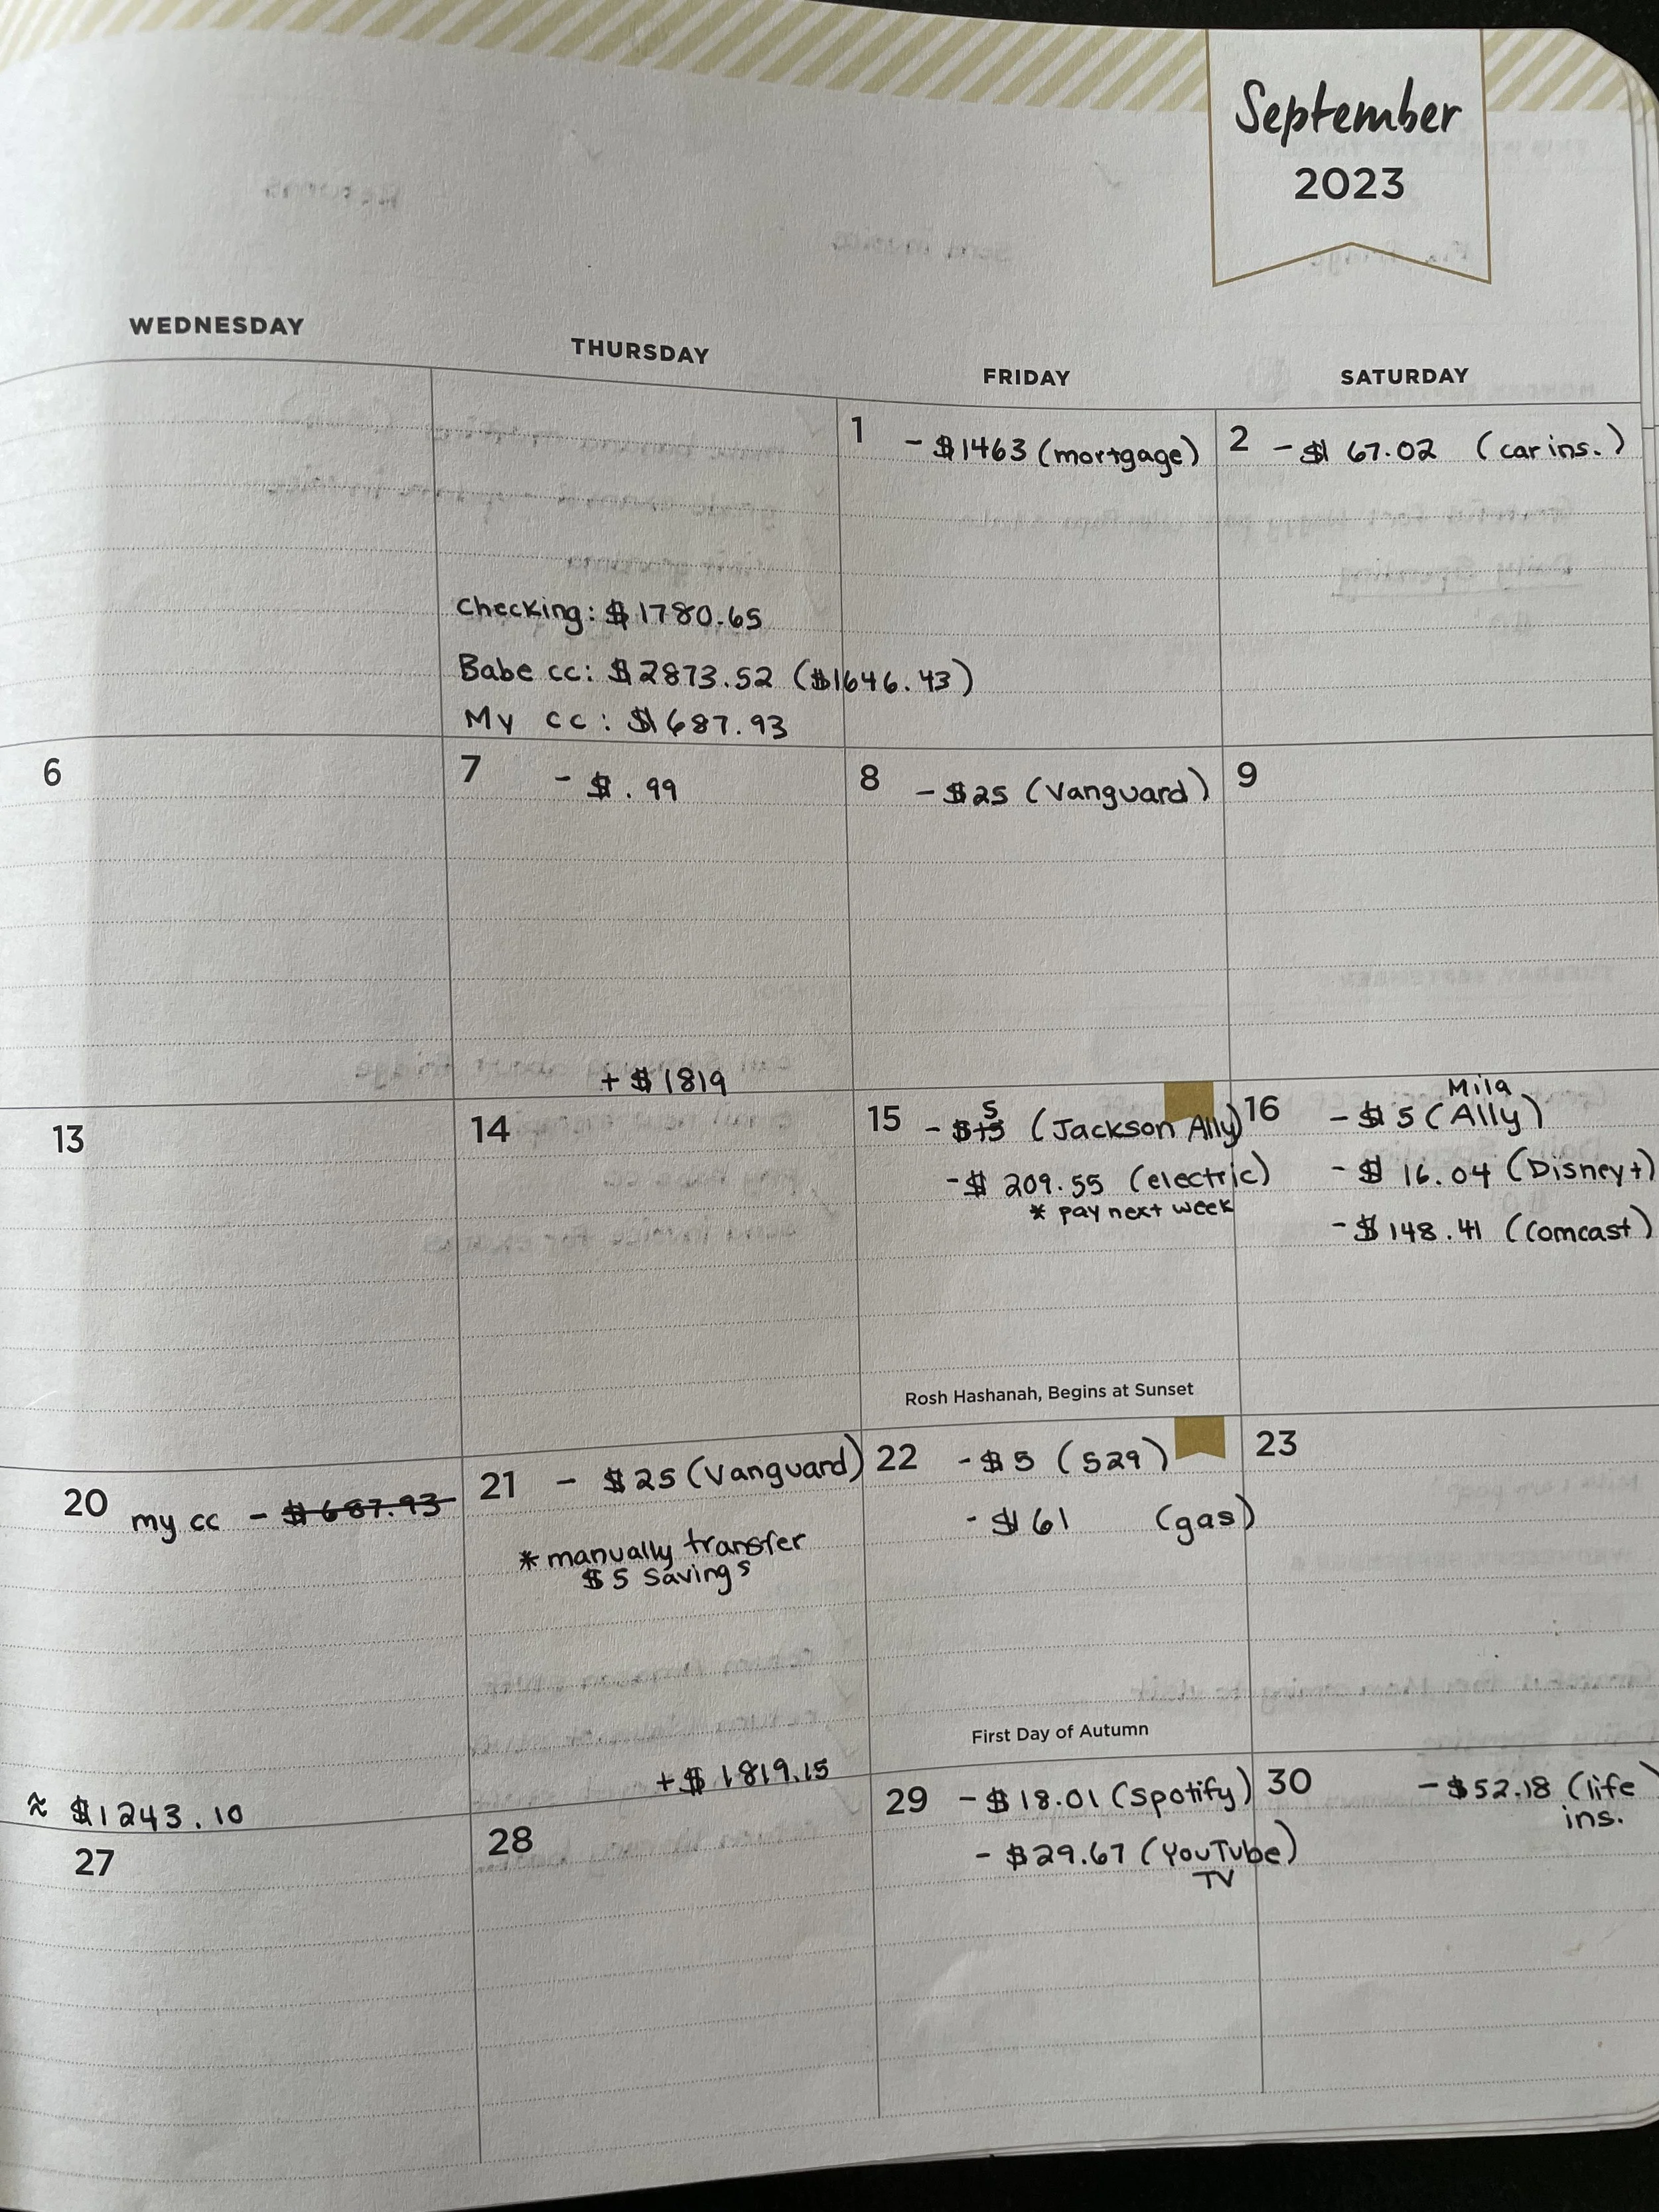 September
2023
WEDNESDAY
THURSDAY
FRIDAY
SATURDAY
Checking: $1780.65
Babe cc: $2873.52 ($1646.43)
My cc: $687.93
1 - $1463 (mortgage)
2 - $167.02 (car ins.)
6
7 - $.99
+ $1819
8 - $25 (Vanguard)
9
13
14
15 - $15 5 (Jackson Ally)
- $209.55 (electric)
* pay next week
Rosh Hashanah, Begins at Sunset
16 - $5 (Mila Ally)
- $16.04 (Disney+)
- $148.41 (Comcast)
20 my cc - $687.93
≈ $1243.10
21 - $25 (Vanguard)
* manually transfer
$5 savings
+ $1819.15
22 - $5 (529)
- $61 (gas)
First Day of Autumn
23
27
28
29 - $18.01 (Spotify)
- $29.67 (YouTube
TV
30 - $52.18 (life
ins.